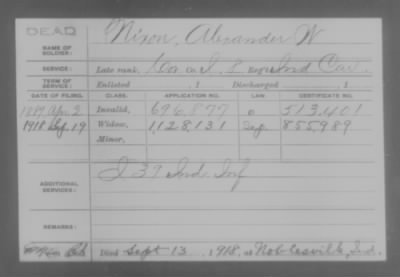 DEAD
NAME OF SOLDIER: Nixon, Alexander W
SERVICE: Late rank, Co. L, Reg't Ind Cav.
TERM OF SERVICE: Enlisted , 1 Discharged , 1
DATE OF FILING. CLASS. APPLICATION NO. LAW. CERTIFICATE NO.
1889 Apr. 2 Invalid, 696,877 513,401
1918 Sep. 19 Widow, 1,128,131 855,989
Minor,
ADDITIONAL SERVICES: I 37 Ind Inf
REMARKS:
Died Sept 13, 1918, at Noblesville, Ind.